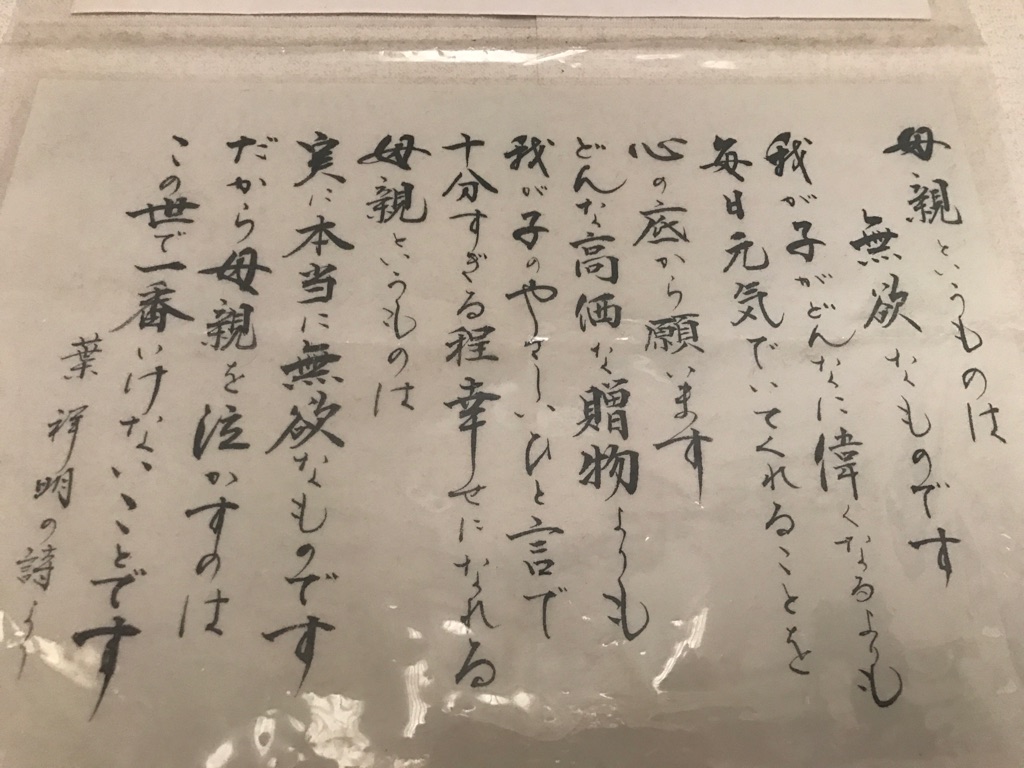 母親というものは
無欲なものです
我が子がどんなに偉くなるよりも
毎日元気でいてくれることを
心の底から願います
どんな高価な贈物よりも
我が子のやさしいひと言で
十分すぎる程幸せになれる
母親というものは
実に本当に無欲なものです
だから母親を泣かすのは
この世で一番いけないことです
葉祥明の詩より